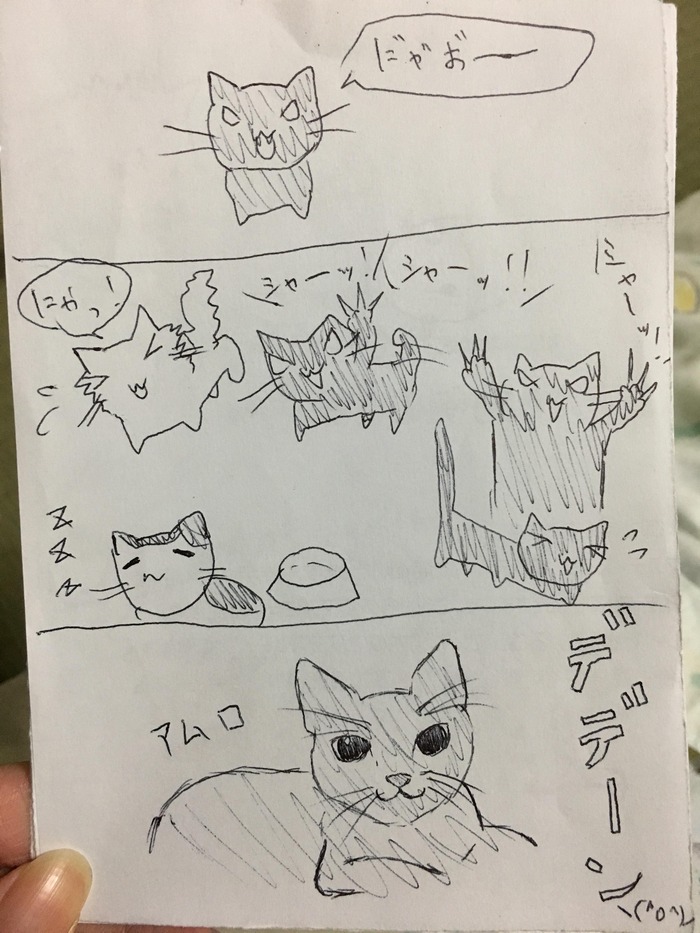 に゛ゃお゛ーー
にゃっ!
シャーッ!!
シャーッ!!
にゃーッ!
zzz
アムロ
デデーン
\(^o^)